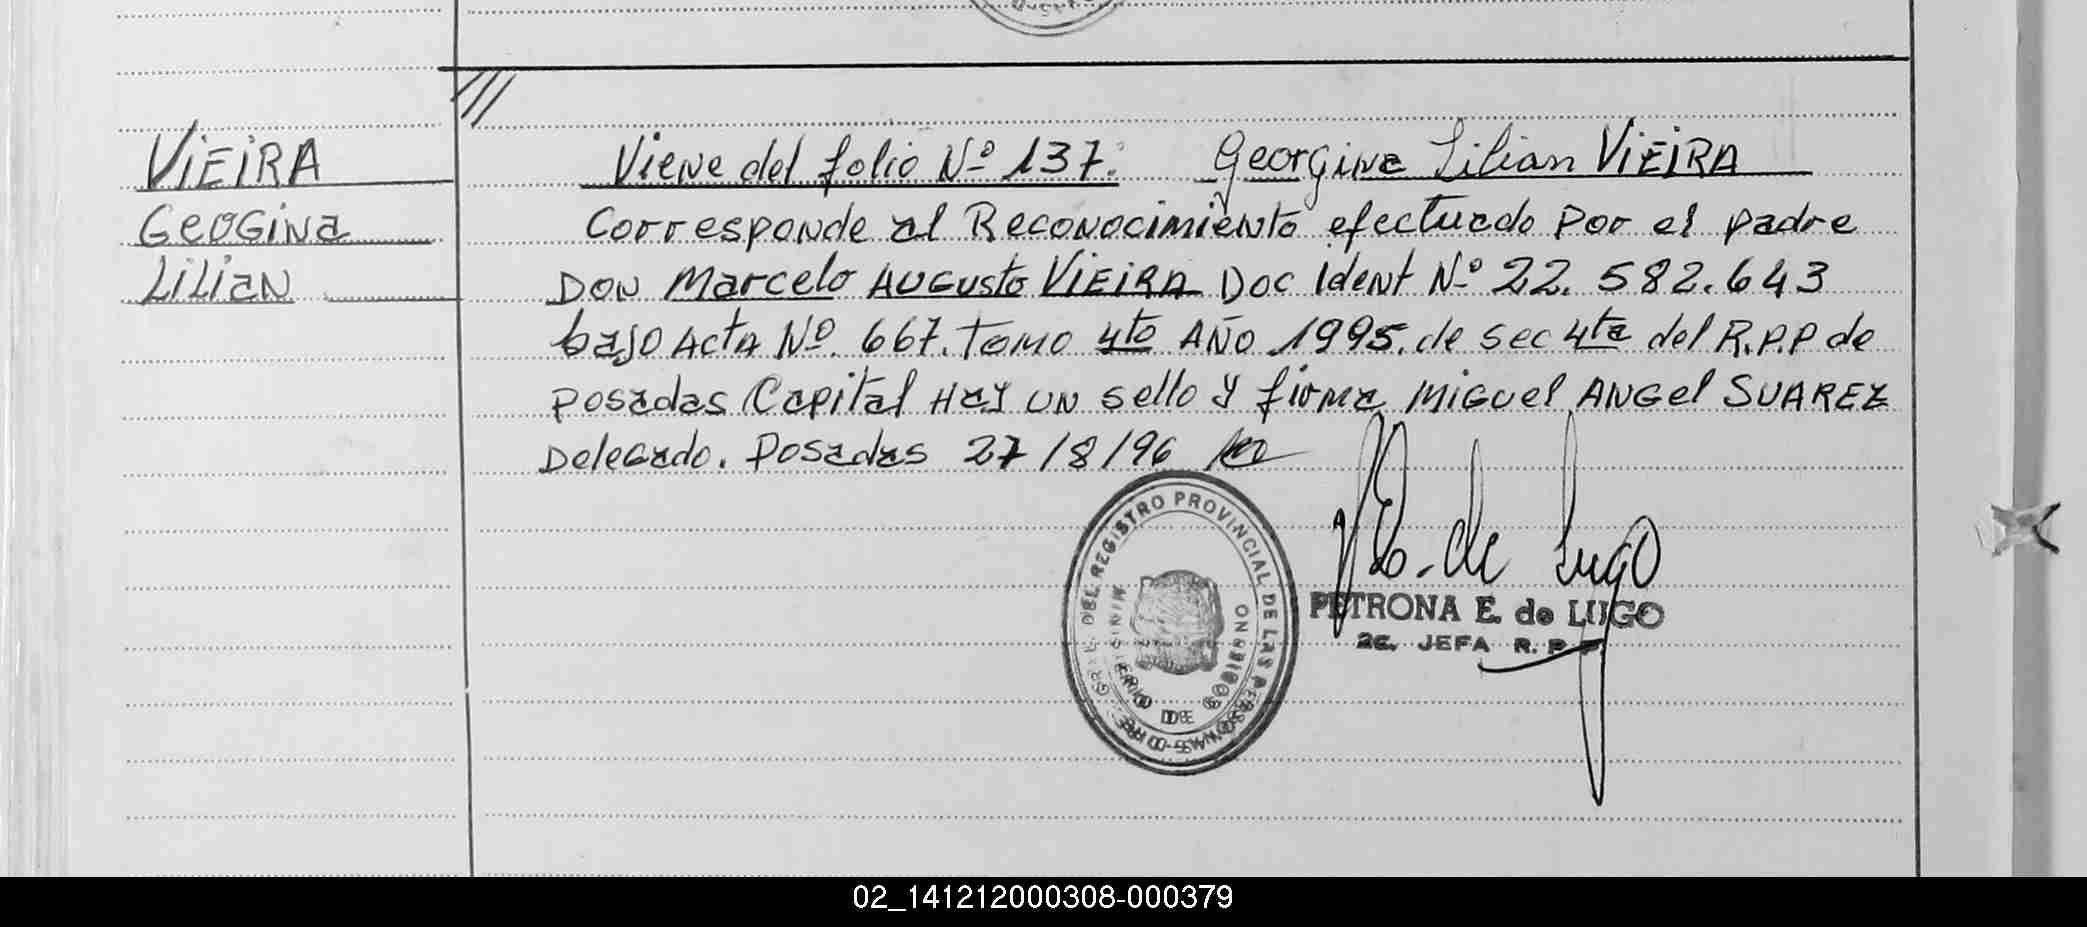 VIEIRA
GEOGINA
LILIAN
Viene del folio Nº 137. Georgina Lilian VIEIRA
Corresponde al Reconocimiento efectuado por el padre
DON Marcelo AUGUSTO VIEIRA Doc Ident Nº 22.582.643
bajo ACTA Nº 667. TOMO 4to AÑO 1995. de sec 4ta del R.P.P de
posadas Capital HAY UN sello y firma MIGUEL ANGEL SUAREZ
Delegado. Posadas 27/8/96
GRAL. DEL REGISTRO PROVINCIAL DE LAS PERSONAS
MINISTERIO DE GOBIERNO
P.E. de Lugo
PETRONA E. de LUGO
2a. JEFA R. P. P
02_141212000308-000379